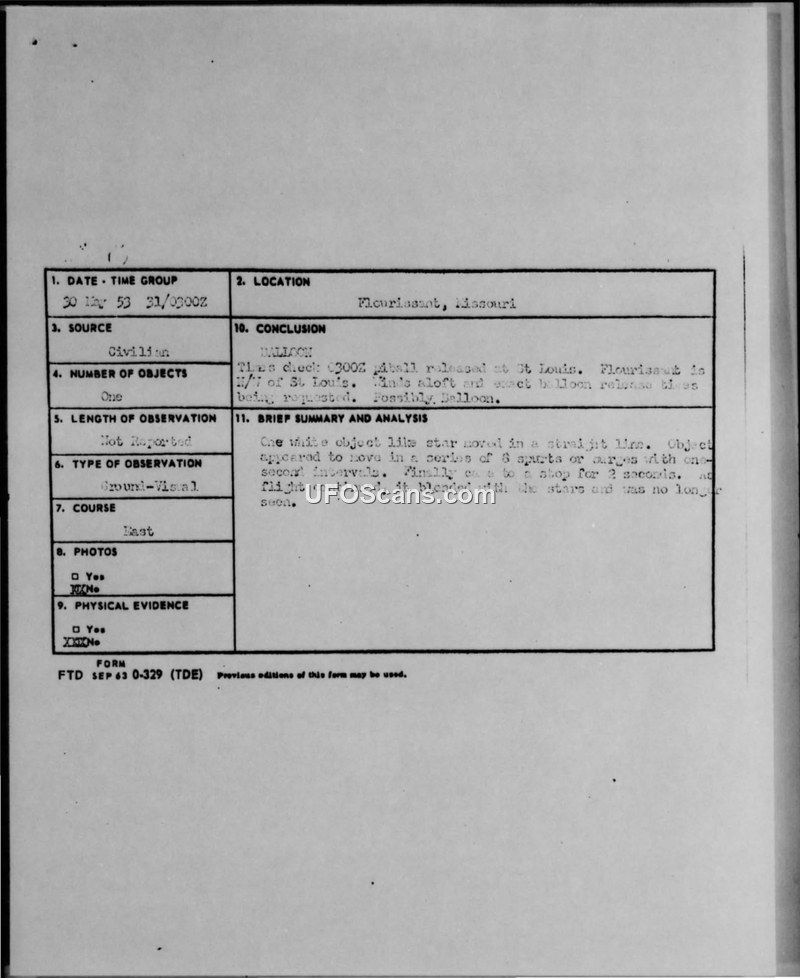 1. DATE - TIME GROUP
30 May 53 31/0300Z
2. LOCATION
Flourissant, Missouri
3. SOURCE
Civilian
10. CONCLUSION
BALLOON
Times check 0300Z released at St Louis. Flourissant is
N/W of St Louis. Winds aloft and exact balloon release times
being requested. Possibly Balloon.
4. NUMBER OF OBJECTS
One
5. LENGTH OF OBSERVATION
Not Reported
11. BRIEF SUMMARY AND ANALYSIS
One white object like star moved in a straight line. Object
appeared to move in a series of 6 spurts or surges with one-
second intervals. Finally came to a stop for 2 seconds. As
flight it blended with the stars and was no longer
seen.
6. TYPE OF OBSERVATION
Ground-Visual
7. COURSE
East
8. PHOTOS
□ Yes
XXXNo
9. PHYSICAL EVIDENCE
□ Yes
XXXXNo
FORM
FTD SEP 63 0-329 (TDE) Previous editions of this form may be used.
UFOScans.com